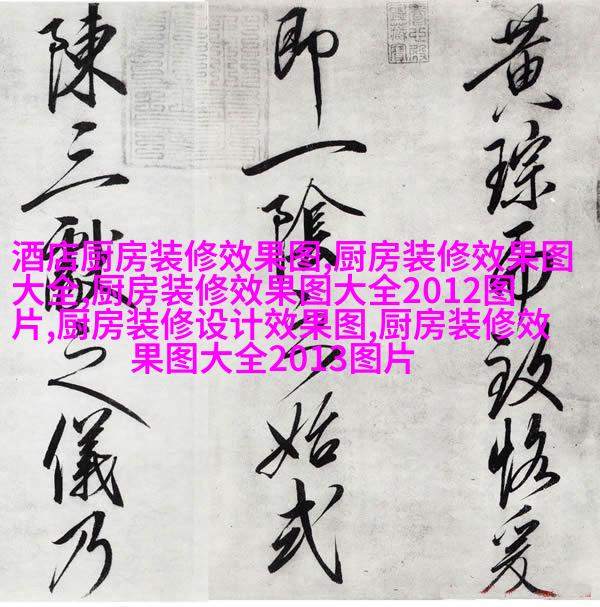 酒店厨房装修效果图,厨房装修效果图
大全,厨房装修效果图大全2012图
片,厨房装修设计效果图,厨房装修效
果图大全2013图片
黄琮而致恪爰
即一陰之始式
陳三獻之儀乃